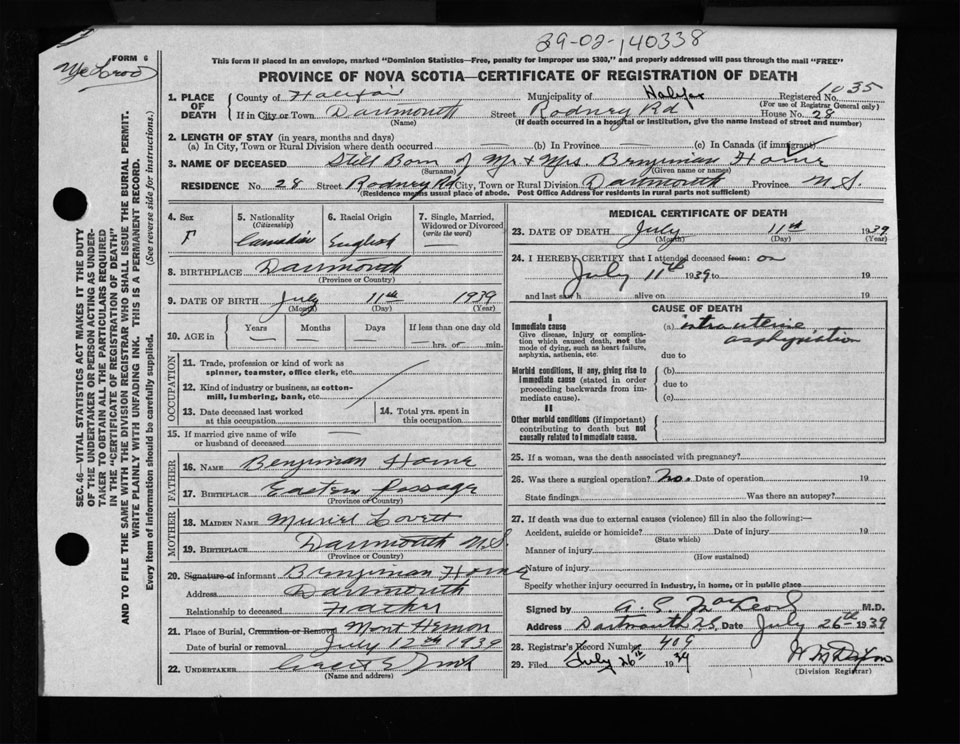 29-02-140338
FORM 6
This form if placed in an envelope, marked "Dominion Statistics—Free, penalty for improper use $300," and properly addressed will pass through the mail "FREE"
PROVINCE OF NOVA SCOTIA—CERTIFICATE OF REGISTRATION OF DEATH
SEC. 46—VITAL STATISTICS ACT MAKES IT THE DUTY
OF THE UNDERTAKER OR PERSON ACTING AS UNDER-
TAKER TO OBTAIN ALL THE PARTICULARS REQUIRED
IN THE "CERTIFICATE OF REGISTRATION OF DEATH"
AND TO FILE THE SAME WITH THE DIVISION REGISTRAR WHO SHALL ISSUE THE BURIAL PERMIT.
WRITE PLAINLY WITH UNFADING INK. THIS IS A PERMANENT RECORD.
Every item of information should be carefully supplied. (See reverse side for instructions.)
1. PLACE OF DEATH County of Halifax Municipality of Halifax Registered No. 1035
(For use of Registrar General only)
If in City or Town Dartmouth Street Rodney Rd House No. 28
(Name) (If death occurred in a hospital or institution, give the name instead of street and number)
2. LENGTH OF STAY (in years, months and days)
(a) In City, Town or Rural Division where death occurred (b) In Province (c) In Canada (if immigrant)
3. NAME OF DECEASED Still Born of Mr & Mrs. Benjiman Horne
(Surname) (Given name or names)
RESIDENCE No. 28 Street Rodney Rd City, Town or Rural Division Dartmouth Province N.S.
(Residence means usual place of abode. Post Office Address for residents in rural parts not sufficient)
4. Sex F
5. Nationality (Citizenship) Canadian
6. Racial Origin English
7. Single, Married, Widowed or Divorced (write the word)
8. BIRTHPLACE Dartmouth
(Province or Country)
9. DATE OF BIRTH July 11th 1939
(Month) (Day) (Year)
10. AGE in Years Months Days If less than one day old
hrs. or min.
OCCUPATION
11. Trade, profession or kind of work as
spinner, teamster, office clerk, etc.
12. Kind of industry or business, as cotton-
mill, lumbering, bank, etc.
13. Date deceased last worked at this occupation
14. Total yrs. spent in this occupation
15. If married give name of wife
or husband of deceased
FATHER
16. NAME Benjiman Horne
17. BIRTHPLACE Eastern Passage
(Province or Country)
MOTHER
18. MAIDEN NAME Muriel Lovett
19. BIRTHPLACE Dartmouth N.S.
(Province or Country)
20. Signature of informant Benjiman Horne
Address Dartmouth
Relationship to deceased Father
21. Place of Burial, Cremation or Removal Mont Hermon
Date of burial or removal July 12th 1939
22. UNDERTAKER
(Name and address)
MEDICAL CERTIFICATE OF DEATH
23. DATE OF DEATH July 11th 1939
(Month) (Day) (Year)
24. I HEREBY CERTIFY that I attended deceased from: on
July 11th 1939 to 19
and last saw h alive on 19
CAUSE OF DEATH
I
Immediate cause
Give disease, injury or complica-
tion which caused death, not the
mode of dying, such as heart failure,
asphyxia, asthenia, etc.
(a) intrauterine
asphyxiation
due to
Morbid conditions, if any, giving rise to
immediate cause (stated in order
proceeding backwards from im-
mediate cause).
(b)
due to
(c)
II
Other morbid conditions (if important)
contributing to death but not
causally related to immediate cause.
25. If a woman, was the death associated with pregnancy?
26. Was there a surgical operation? No. Date of operation 19
State findings Was there an autopsy?
27. If death was due to external causes (violence) fill in also the following:—
Accident, suicide or homicide? Date of injury 19
(State which)
Manner of injury
(How sustained)
Nature of injury
Specify whether injury occurred in industry, in home, or in public place
Signed by M.D.
Address Dartmouth N.S. Date July 26th 1939
28. Registrar's Record Number 409
29. Filed July 26th 1939
(Division Registrar)